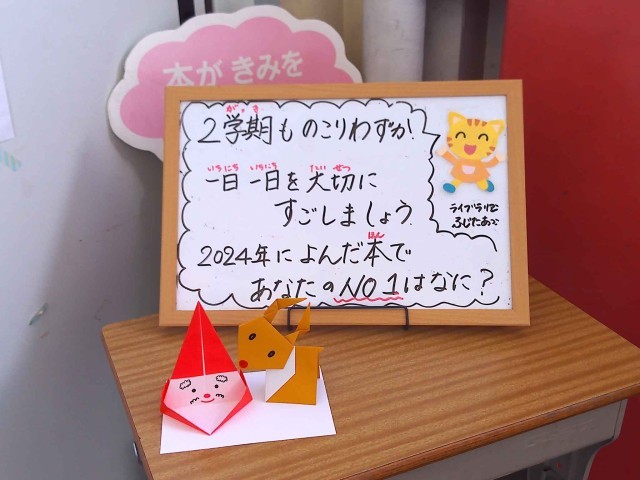 本がきみを
がっき
2学期ものこりわずか!
いちにち いちにち たいせつ
一日一日を大切に
すごしましょう
ほん
2024年によんだ本で
あなたのNO1はなに?
ふじたあ